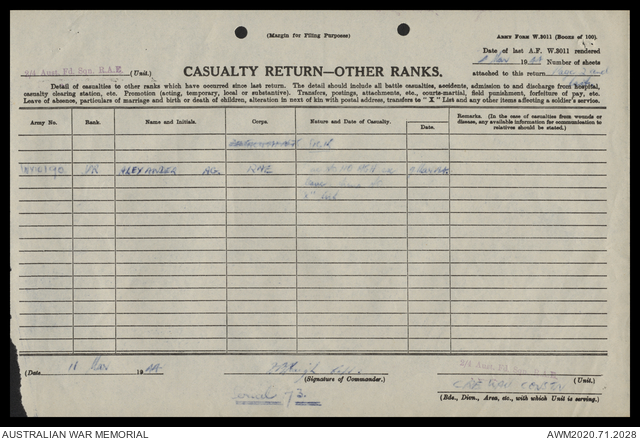 (Margin for Filing Purposes)
ARMY FORM W.3011 (BOOKS OF 100).
Date of last A.F. W.3011 rendered
8 Mar 1944 Number of sheets
attached to this return
2/4 Aust. Fd. Sqn. R.A.E. (Unit.)
CASUALTY RETURN—OTHER RANKS.
Detail of casualties to other ranks which have occurred since last return. The detail should include all battle casualties, accidents, admission to and discharge from hospital,
casualty clearing station, etc. Promotion (acting, temporary, local or substantive). Transfers, postings, attachments, etc., courts-martial, field punishment, forfeiture of pay, etc.
Leave of absence, particulars of marriage and birth or death of children, alteration in next of kin with postal address, transfers to "X" List and any other items affecting a soldier's service.
Army No. Rank. Name and Initials. Corps. Nature and Date of Casualty. Date. Remarks. (In the case of casualties from wounds or
disease, any available information for communication to
relatives should be stated.)
ALEXANDER RAE
X List
(Date 11 Mar 1944
(Signature of Commander.)
2/4 Aust. Fd. Sqn. R.A.E.
(Unit.)
(Bde., Divn., Area, etc., with which Unit is serving.)
Serial 73.
AUSTRALIAN WAR MEMORIAL
AWM2020.71.2028